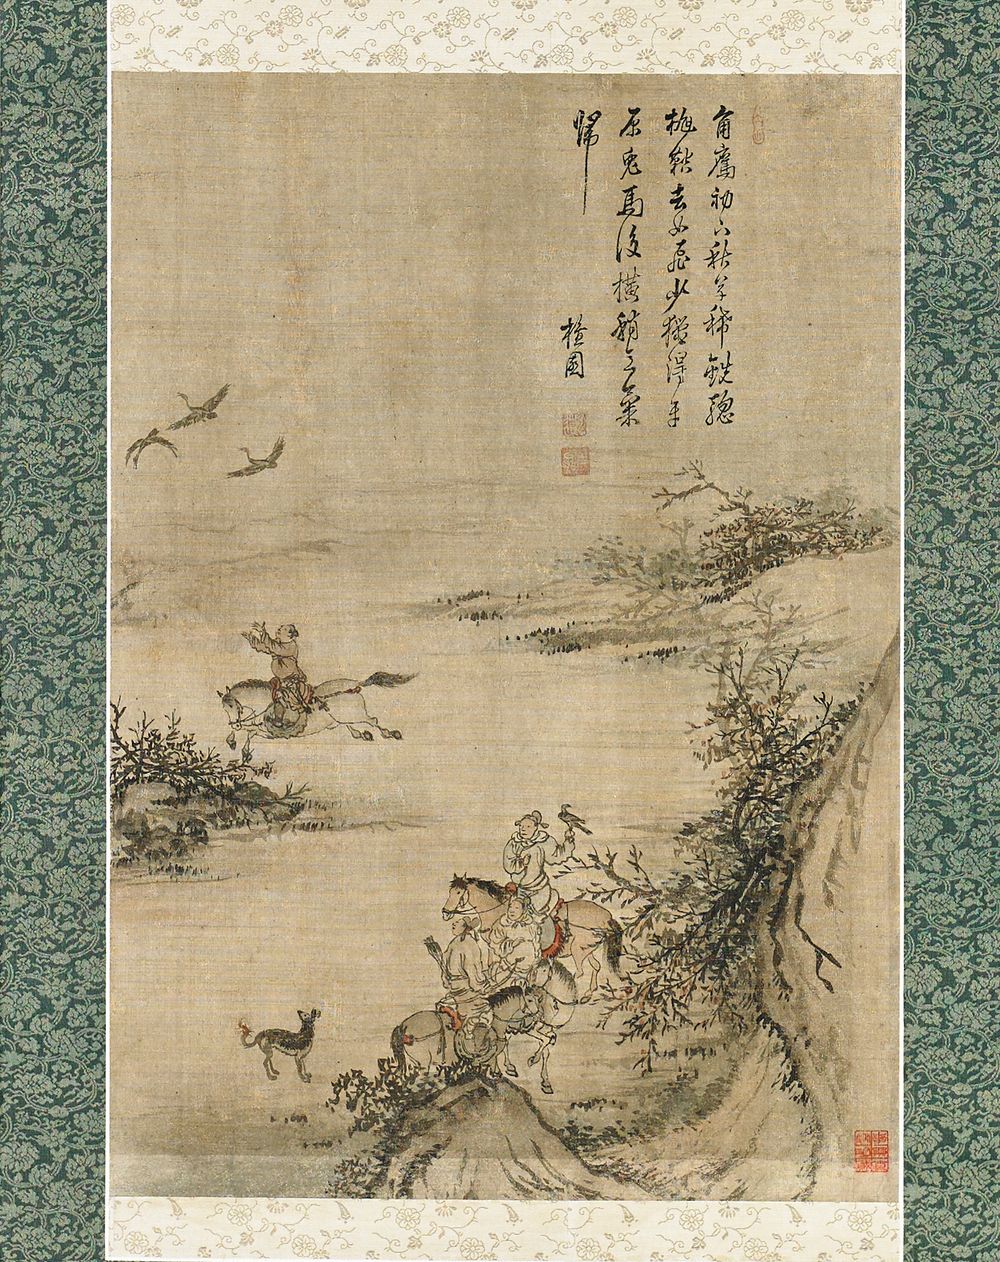 角鷹初下秋草稀鐵驄
拋鞚去如飛少獵得平
原兔馬後橫捎意氣
歸
檀園